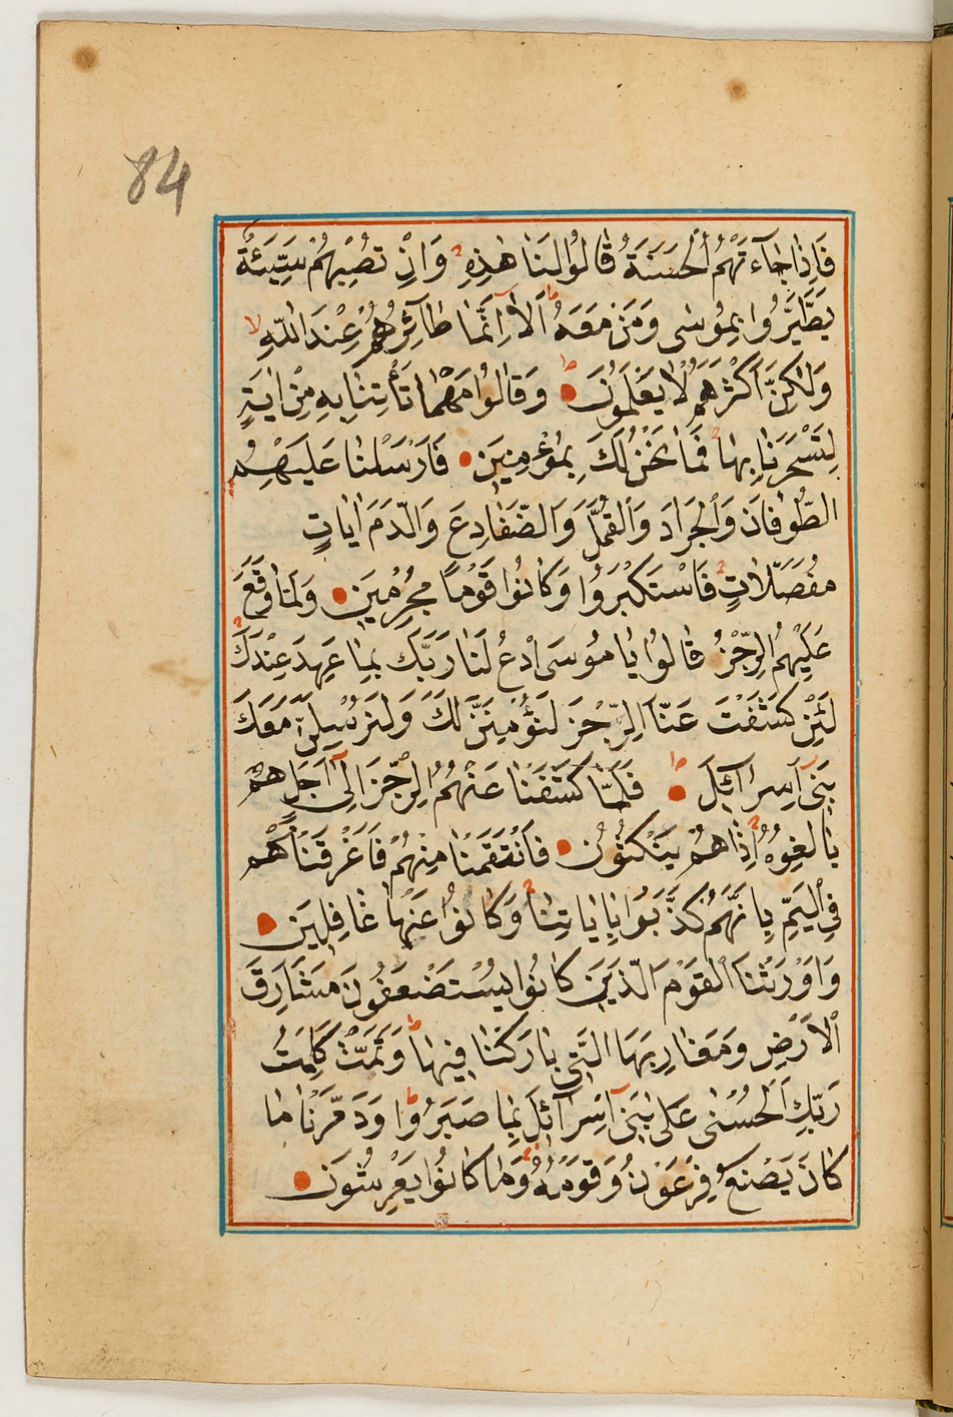 84
فَاِذَا جَآءَتْهُمُ الْحَسَنَةُ قَالُوا لَنَا هٰذِهِ وَاِنْ تُصِبْهُمْ سَيِّئَةٌ
يَطَّيَّرُوا بِمُوسٰى وَمَنْ مَعَهُ اَلَا اِنَّمَا طَآئِرُهُمْ عِنْدَ اللّٰهِ
وَلٰكِنَّ اَكْثَرَهُمْ لَا يَعْلَمُونَ وَقَالُوا مَهْمَا تَأْتِنَا بِهِ مِنْ اٰيَةٍ
لِتَسْحَرَنَا بِهَا فَمَا نَحْنُ لَكَ بِمُؤْمِنِينَ فَاَرْسَلْنَا عَلَيْهِمُ
الطُّوفَانَ وَالْجَرَادَ وَالْقُمَّلَ وَالضَّفَادِعَ وَالدَّمَ اٰيَاتٍ
مُفَصَّلَاتٍ فَاسْتَكْبَرُوا وَكَانُوا قَوْمًا مُجْرِمِينَ وَلَمَّا وَقَعَ
عَلَيْهِمُ الرِّجْزُ قَالُوا يَا مُوسَى ادْعُ لَنَا رَبَّكَ بِمَا عَهِدَ عِنْدَكَ
لَئِنْ كَشَفْتَ عَنَّا الرِّجْزَ لَنُؤْمِنَنَّ لَكَ وَلَنُرْسِلَنَّ مَعَكَ
بَنِى اِسْرَآئِلَ فَلَمَّا كَشَفْنَا عَنْهُمُ الرِّجْزَ اِلٰى اَجَلٍ هُمْ
بَالِغُوهُ اِذَا هُمْ يَنْكُثُونَ فَانْتَقَمْنَا مِنْهُمْ فَاَغْرَقْنَاهُمْ
فِى الْيَمِّ بِاَنَّهُمْ كَذَّبُوا بِاٰيَاتِنَا وَكَانُوا عَنْهَا غَافِلِينَ
وَاَوْرَثْنَا الْقَوْمَ الَّذِينَ كَانُوا يُسْتَضْعَفُونَ مَشَارِقَ
الْاَرْضِ وَمَغَارِبَهَا الَّتِى بَارَكْنَا فِيهَا وَتَمَّتْ كَلِمَتُ
رَبِّكَ الْحُسْنٰى عَلٰى بَنِى اِسْرَآئِلَ بِمَا صَبَرُوا وَدَمَّرْنَا مَا
كَانَ يَصْنَعُ فِرْعَوْنُ وَقَوْمُهُ وَمَا كَانُوا يَعْرِشُونَ